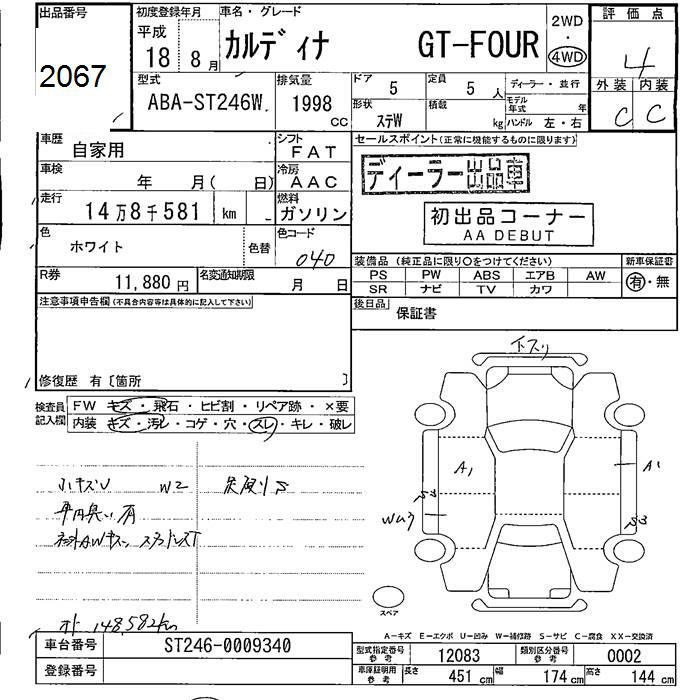 出品番号
2067
初度登録年月
平成
18年 8月
車名・グレード
カルディナ GT-FOUR
2WD
・
4WD
評価点
4
外装 内装
C C
型式
ABA-ST246W
排気量
1998 CC
ドア
5
定員
5 人
形状
ステW
積載
kg
ディーラー・並行
モデル年式 年
ハンドル 左・右
車歴
自家用
シフト
FAT
車検
年 月( 日)
冷房
AAC
走行
14万8千581 km
燃料
ガソリン
色
ホワイト
色替
色コード
040
R券
11,880 円
名変通知期限
月 日
セールスポイント(正常に機能するものに限ります)
ディーラー出品車
初出品コーナー
AA DEBUT
装備品 (純正品に限り○をつけてください)
PS PW ABS エアB AW
SR ナビ TV カワ
新車保証書
有・無
後日品
保証書
注意事項申告欄(不具合内容等は具体的に記入して下さい)
修復歴 有〔箇所 〕
検査員記入欄
FW キズ・飛石・ヒビ割・リペア跡・×要
内装 キズ・汚レ・コゲ・穴・スレ・キレ・破レ
小キズU W2
148,582km
下スリ
A1
A1
WU3
スペア
A-キズ E-エクボ U-凹み W-補修跡 S-サビ C-腐食 XX-交換済
車台番号
ST246-0009340
登録番号
型式指定番号 参考
12083
類別区分番号 参考
0002
車庫証明用 参考
長さ 451 cm 幅 174 cm 高さ 144 cm